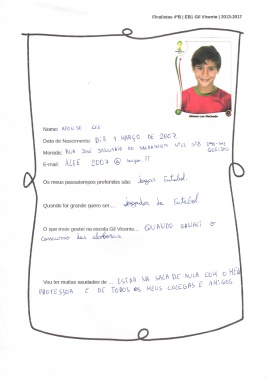 Finalistas 4ºB | EB1 Gil Vicente | 2013-2017
Afonso Lee Machado
Nome: AFONSO LEE
Data de Nascimento: DIA 9 MARÇO DE 2007
Morada: RUA JOSÉ DO SACRAMENTO Nº
E-mail: ALEE 2007 @ .PT
Os meus passatempos preferidos são: Jogar Futebol.
Quando for grande quero ser... Jogador de Futebol.
O que mais gostei na escola Gil Vicente... QUANDO GANHEI O
concurso das abóboras
Vou ter muitas saudades de ... ESTAR NA SALA DE AULA COM O MEU
PROFESSOR E DE TODOS OS MEUS COLEGAS E AMIGOS